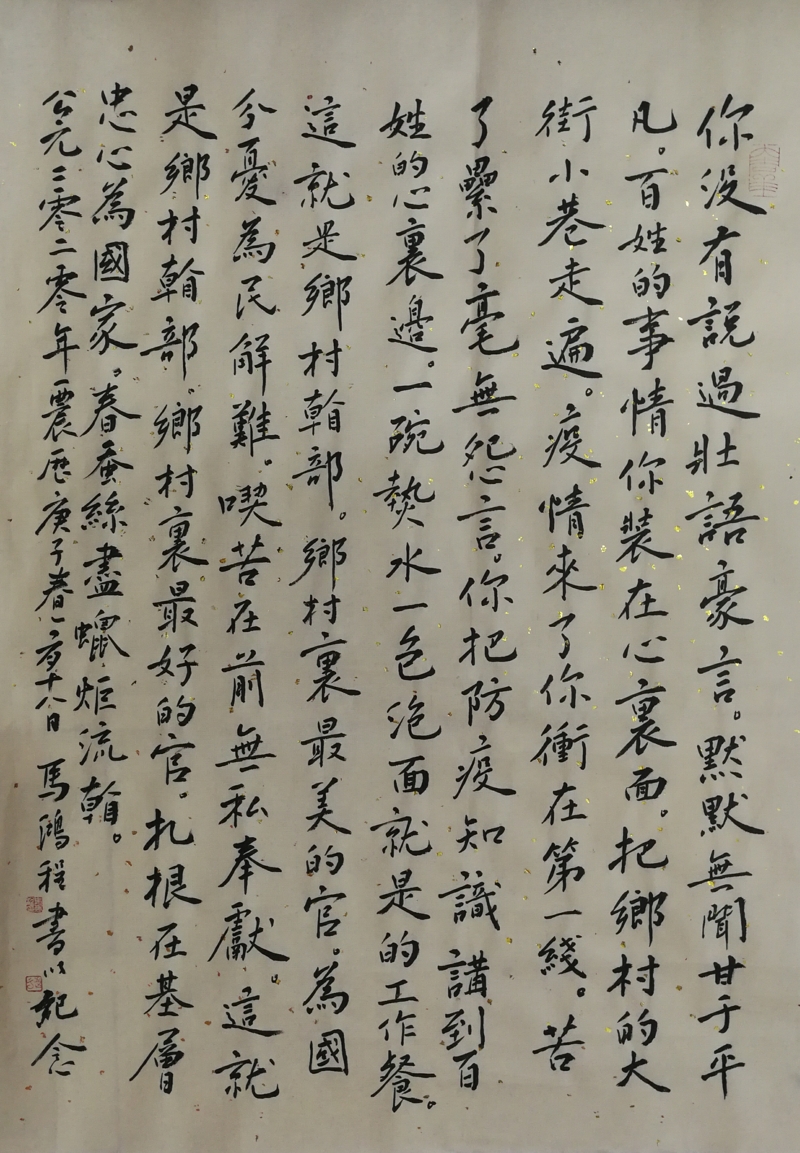 你没有説過壯語豪言。默默無聞甘于平
凡。百姓的事情你裝在心裏面。把鄉村的大
街小巷走遍。疫情來了你衝在第一綫。苦
了纍了毫無怨言。你把防疫知識講到百
姓的心裏邊。一碗熱水一包泡面就是的工作餐。
這就是鄉村榦部。鄉村裏最美的官。為國
分憂為民解難。喫苦在前無私奉獻。這就
是鄉村榦部。鄉村裏最好的官。扎根在基層
忠心為國家。春蚕絲盡蠟炬流榦。
公元二零二零年農历庚子春二月十八日 馬鴻程書以記念